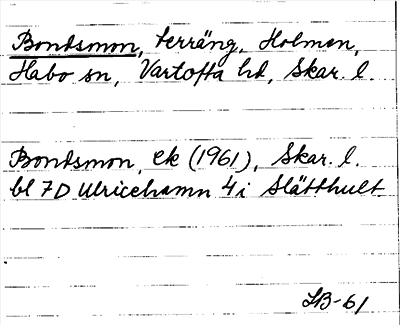 Bondsmon, terräng, Holmen,
Habo sn, Vartofta hd, Skar. l.
Bondsmon, ek (1961), Skar. l.
bl 7D Ulricehamn 4i Slätthult
LB-61